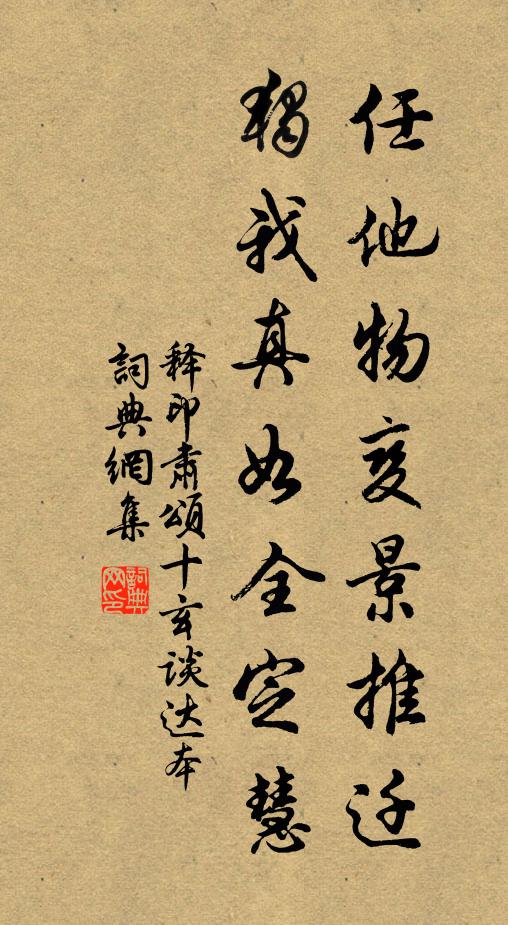 任他物变景推迁
独我真如全定慧
释印肃颂十玄谈达本
詞典網集
詞典网印